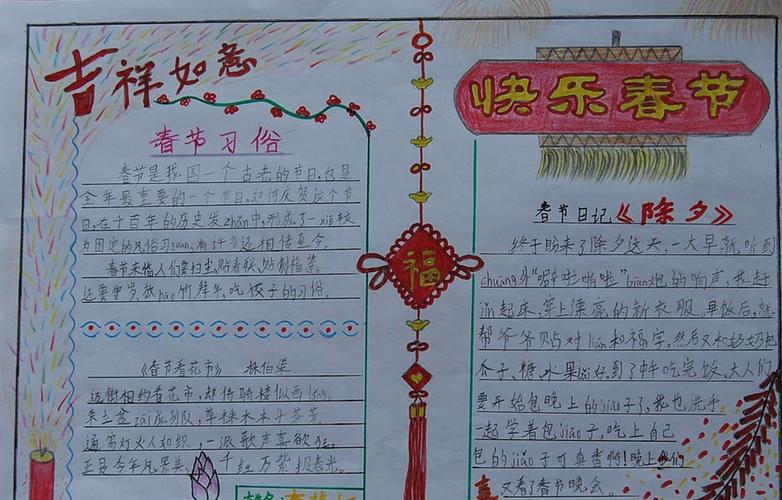 吉祥如意
春节习俗
春节是我国一个古老的节日,也是
全年最重要的一个节日,如何庆贺这个节
日,在千百年的历史发zhǎn中,形成了一xiē较
为固定的风俗习guàn,有许多还相传至今。
春节来临人们要扫尘,贴春联,贴剪福
还要守岁放bào竹,拜年,吃饺子的习俗。
《春节看花市》 林伯渠
迈街相约看花市,却倚骑楼似画lang。
束立盆zāi成列队,草株木本斗芬芳。
通宵灯火人如织,一派歌声喜欲狂。
正是今年风景美,千红万紫报春光。
快乐春节
福
春节日记《除夕》
终于盼来了除夕这天,一大早就听到
chuāng外“噼啦啪啦”biān炮的响声,我赶
jǐn起床,穿上漂亮的新衣服。早饭后,就
帮爷爷贴对lián和福字,然后又和奶奶把
瓜子、糖、水果
到了中午吃完饭,大人们
要开始包晚上的jiǎo子了,我也洗手
一起学着包jiǎo子,吃上自己
包的jiǎo子可真香啊!晚上我们
又看了春节晚会。